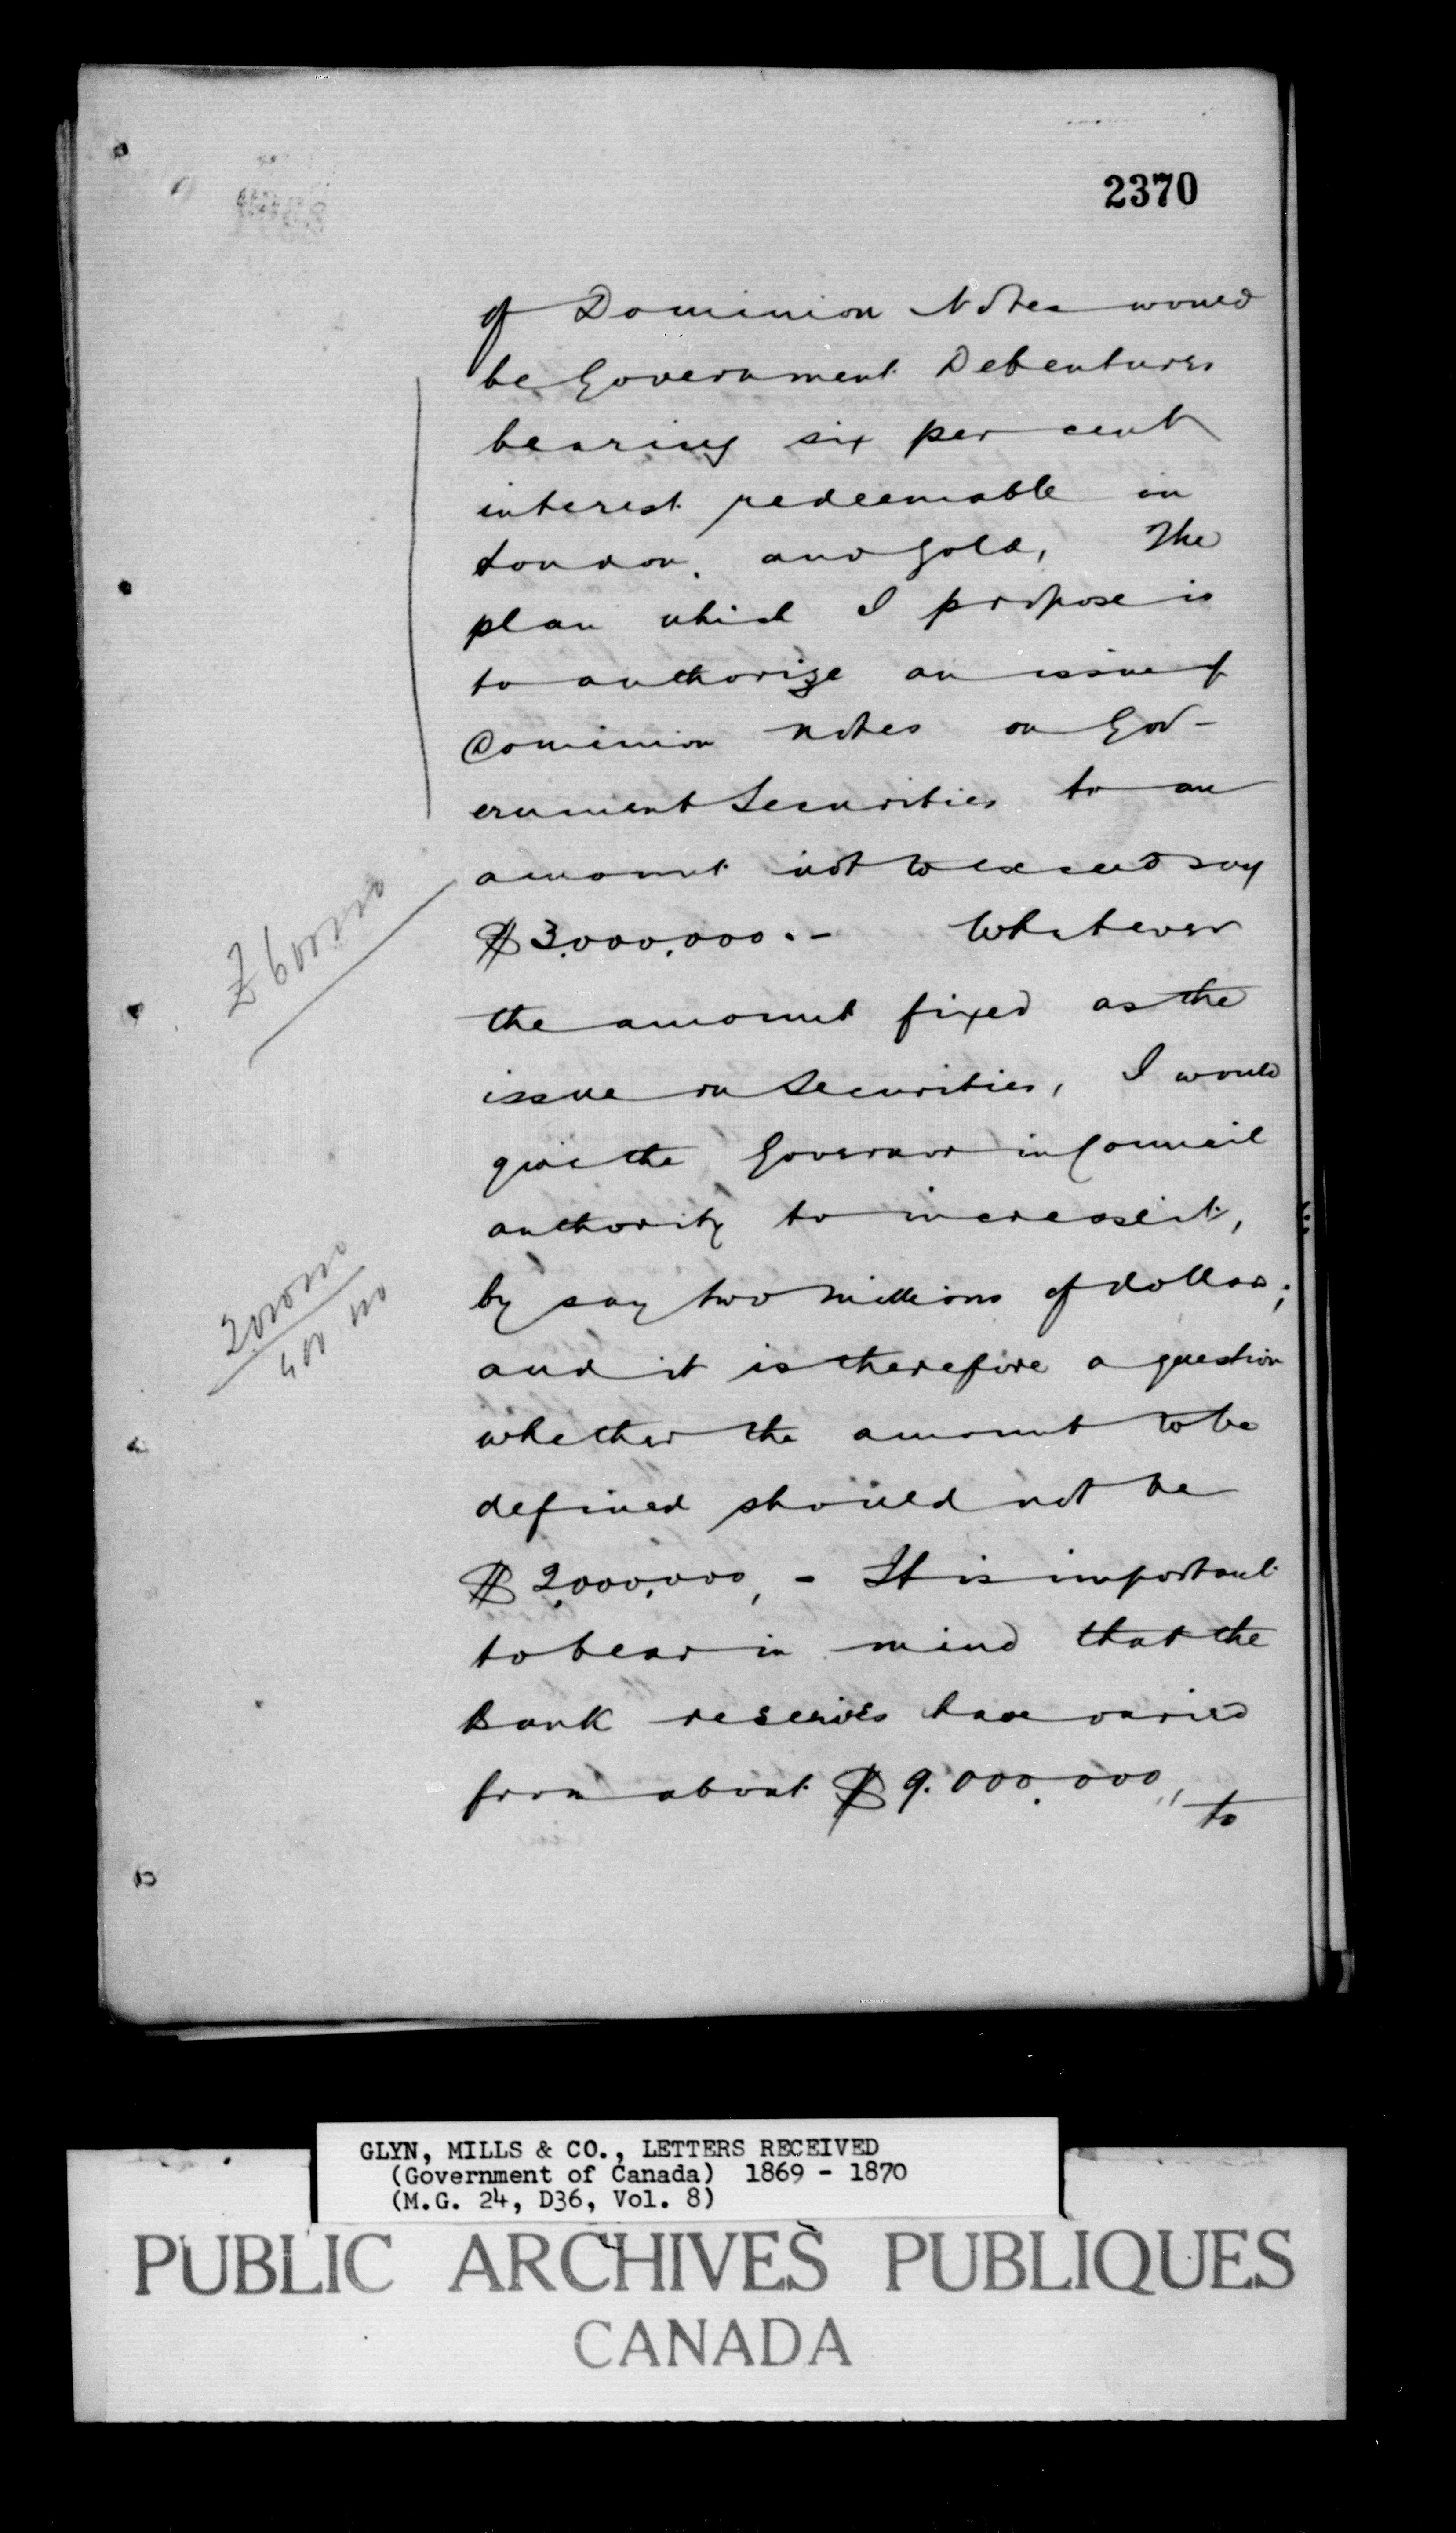 2370
of Dominion Notes would
be Government Debentures
bearing six per cent
interest redeemable in
London. and Gold, The
plan which I propose is
to authorize an issue of
Dominion notes on Gov-
ernment Securities to an
amount not to exceed say
£600000
$3,000,000.- Whatever
the amount fixed as the
issue on Securities, I would
give the Governor in Council
authority to increase it,
by say two millions of dollars;
2000000
400 000
and it is therefore a question
whether the amount to be
defined should not be
$2,000,000, - It is important
to bear in mind that the
bank reserves have varied
from about $9.000.000,, to
GLYN, MILLS & CO., LETTERS RECEIVED
(Government of Canada) 1869 - 1870
(M.G. 24, D36, Vol. 8)
PUBLIC ARCHIVES PUBLIQUES
CANADA